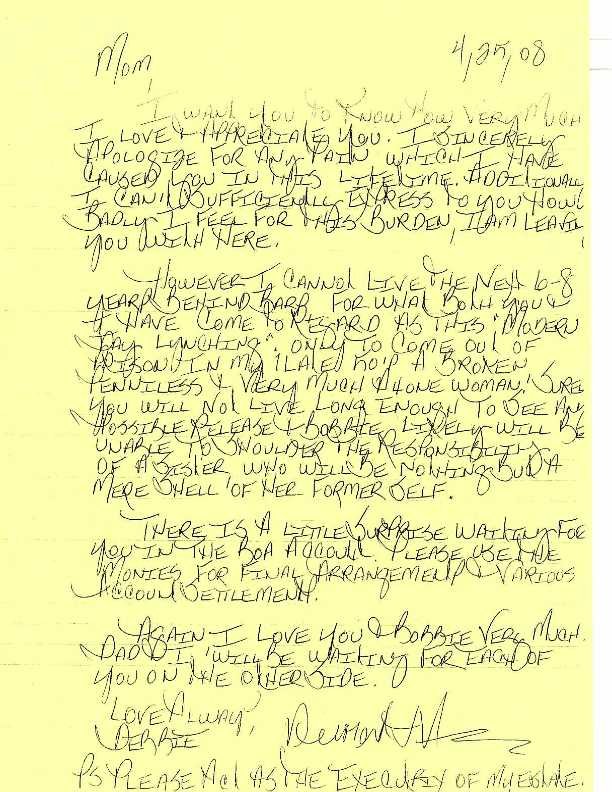 4/25/08
Mom,
I want you to know how very much
I love & appreciate you. I sincerely
apologize for any pain which I have
caused you in this lifetime. Additionall
I can't sufficiently express to you how
badly I feel for this burden, I am leavin
you with here.
However I cannot live the next 6-8
years behind bars for what both you &
I have come to regard as this "modern
day lynching", only to come out of
prison in my late 50's a broken
penniless & very much alone woman. Surel
you will not live long enough to see any
possible release & Bobbie likely will be
unable to shoulder the responsibility
of a sister who will be nothing but a
mere shell of her former self.
There is a little surprise waiting for
you in the BOA account. Please use the
monies for final arrangements & various
account settlements.
Again I love you & Bobbie very much.
Dad & I, will be waiting for each of
you on the other side.
Love Always,
Debbie
PS Please act as the of my estate.